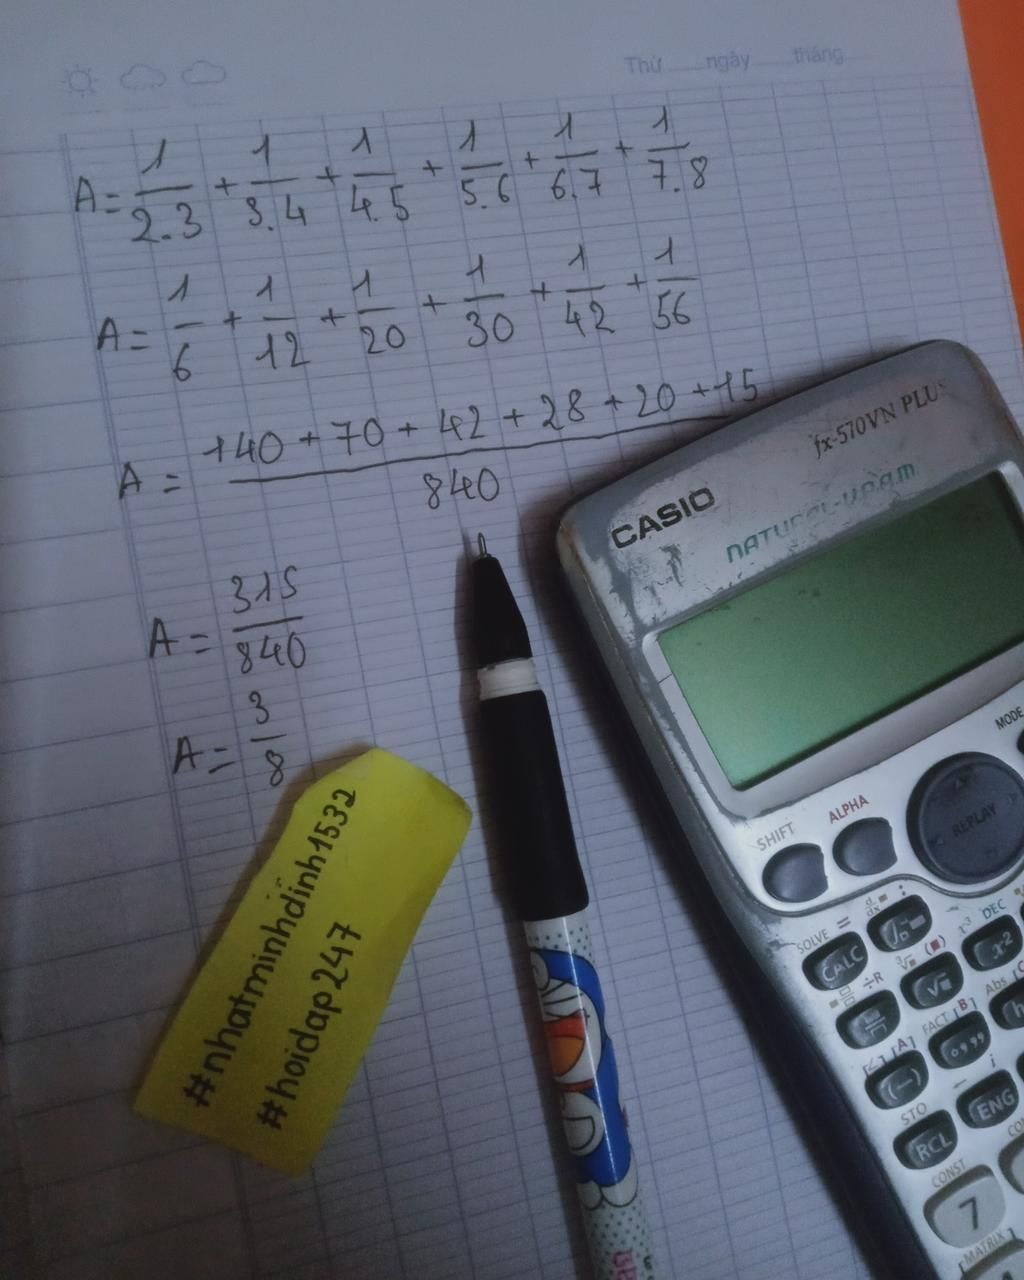 Thứ ngày tháng
A = 1/2.3 + 1/3.4 + 1/4.5 + 1/5.6 + 1/6.7 + 1/7.8
A = 1/6 + 1/12 + 1/20 + 1/30 + 1/42 + 1/56
A = 140 + 70 + 42 + 28 + 20 + 15 / 840
A = 315/840
A = 3/8
#nhatminhdinh1532
#hoidap247
fx-570VN PLUS
CASIO
NATURAL-V.P.A.M.
MODE
SHIFT ALPHA
REPLAY
SOLVE = d/dx :
CALC
x³ DEC
x²
÷R ³√ (■)
√■
Abs
FACT [B]
∠ [A]
(−) °,,,
← i
STO
RCL ENG
CONST
7
MATRIX